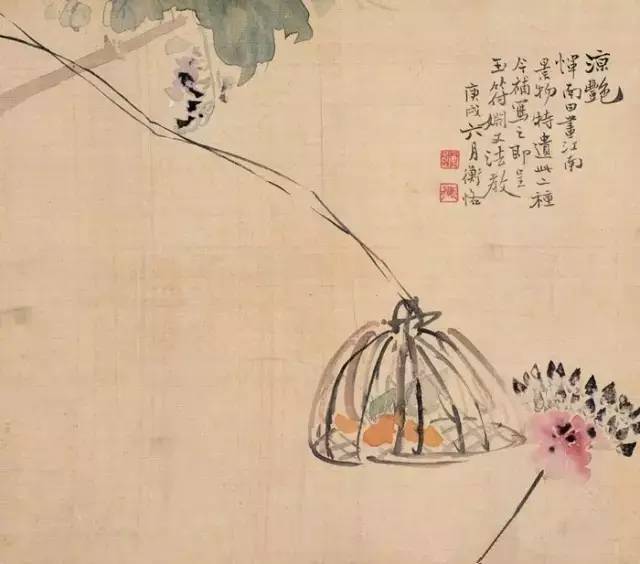 涼艷
惲南田畫江南
景物特遺此二種
今補寫之即呈
玉符姻丈法教
庚戌六月衡恪